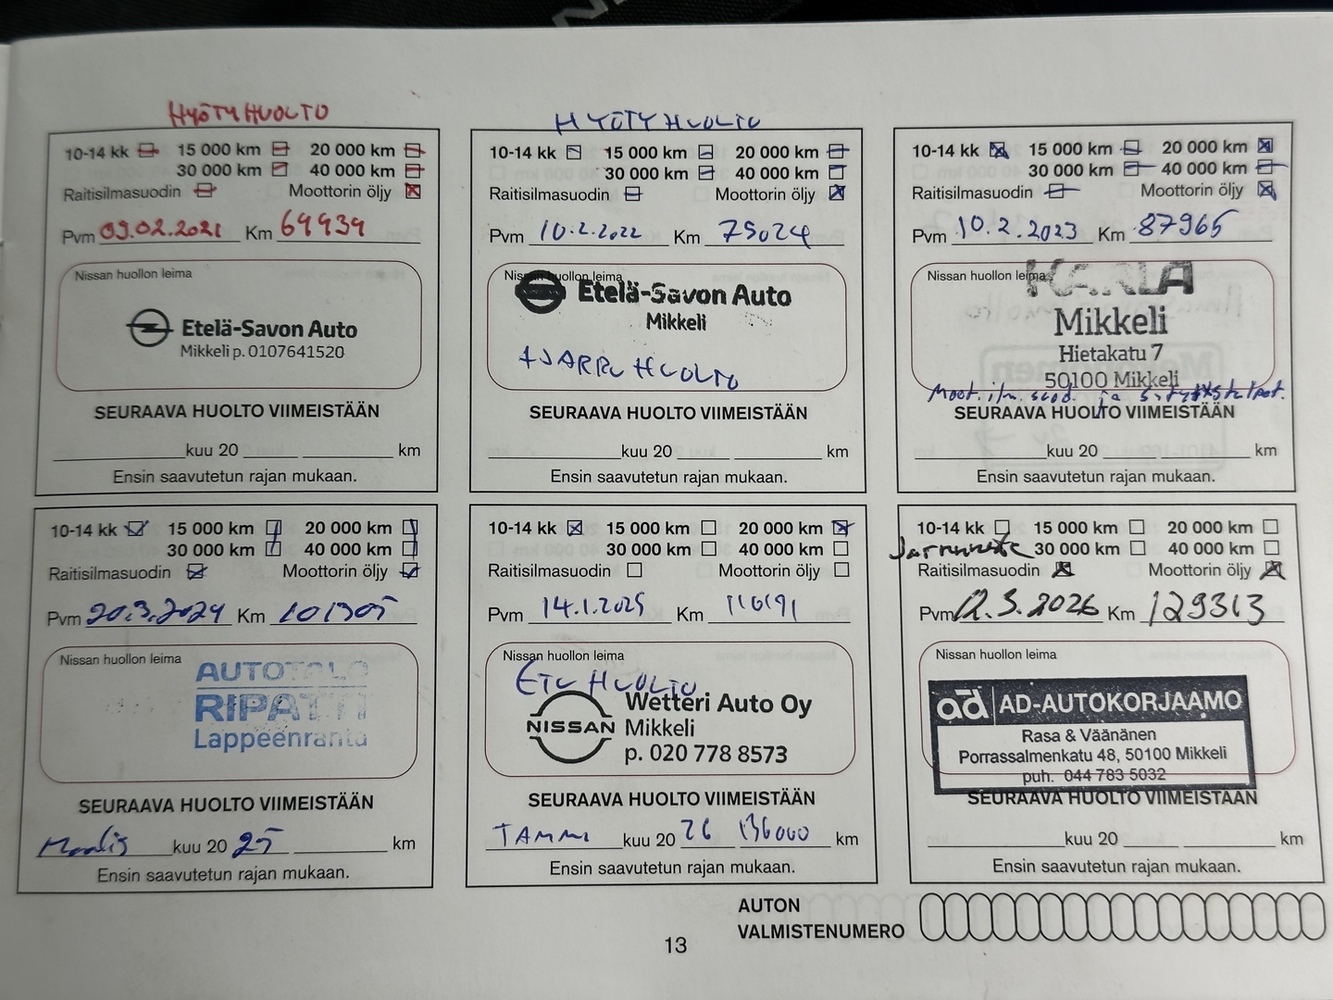 HYÖTYHUOLTO
10-14 kk 15 000 km 20 000 km
30 000 km 40 000 km
Raitisilmasuodin Moottorin öljy
Pvm 09.02.2021 Km 69939
Nissan huollon leima
Etelä-Savon Auto
Mikkeli p. 0107641520
SEURAAVA HUOLTO VIIMEISTÄÄN
kuu 20 km
Ensin saavutetun rajan mukaan.
HYÖTYHUOLTO
10-14 kk 15 000 km 20 000 km
30 000 km 40 000 km
Raitisilmasuodin Moottorin öljy
Pvm 10.2.2022 Km 75024
Nissan huollon leima
Etelä-Savon Auto
Mikkeli
+JARRUHUOLTO
SEURAAVA HUOLTO VIIMEISTÄÄN
kuu 20 km
Ensin saavutetun rajan mukaan.
10-14 kk 15 000 km 20 000 km
30 000 km 40 000 km
Raitisilmasuodin Moottorin öljy
Pvm 10.2.2023 Km 87965
Nissan huollon leima
Mikkeli
Hietakatu 7
50100 Mikkeli
Moot. ilm. suod. ja
SEURAAVA HUOLTO VIIMEISTÄÄN
kuu 20 km
Ensin saavutetun rajan mukaan.
10-14 kk 15 000 km 20 000 km
30 000 km 40 000 km
Raitisilmasuodin Moottorin öljy
Pvm 20.3.2024 Km 101305
Nissan huollon leima
AUTOTALO
RIPATTI
Lappeenranta
SEURAAVA HUOLTO VIIMEISTÄÄN
Maalis kuu 20 25 km
Ensin saavutetun rajan mukaan.
10-14 kk 15 000 km 20 000 km
30 000 km 40 000 km
Raitisilmasuodin Moottorin öljy
Pvm 14.1.2025 Km 116191
Nissan huollon leima
ETU HUOLTO
NISSAN
Wetteri Auto Oy
Mikkeli
p. 020 778 8573
SEURAAVA HUOLTO VIIMEISTÄÄN
TAMMI kuu 20 26 136000 km
Ensin saavutetun rajan mukaan.
10-14 kk 15 000 km 20 000 km
Jarruneste 30 000 km 40 000 km
Raitisilmasuodin Moottorin öljy
Pvm 12.3.2026 Km 129313
Nissan huollon leima
ad AD-AUTOKORJAAMO
Rasa & Väänänen
Porrassalmenkatu 48, 50100 Mikkeli
puh. 044 783 5032
SEURAAVA HUOLTO VIIMEISTÄÄN
kuu 20 km
Ensin saavutetun rajan mukaan.
AUTON
VALMISTENUMERO
13